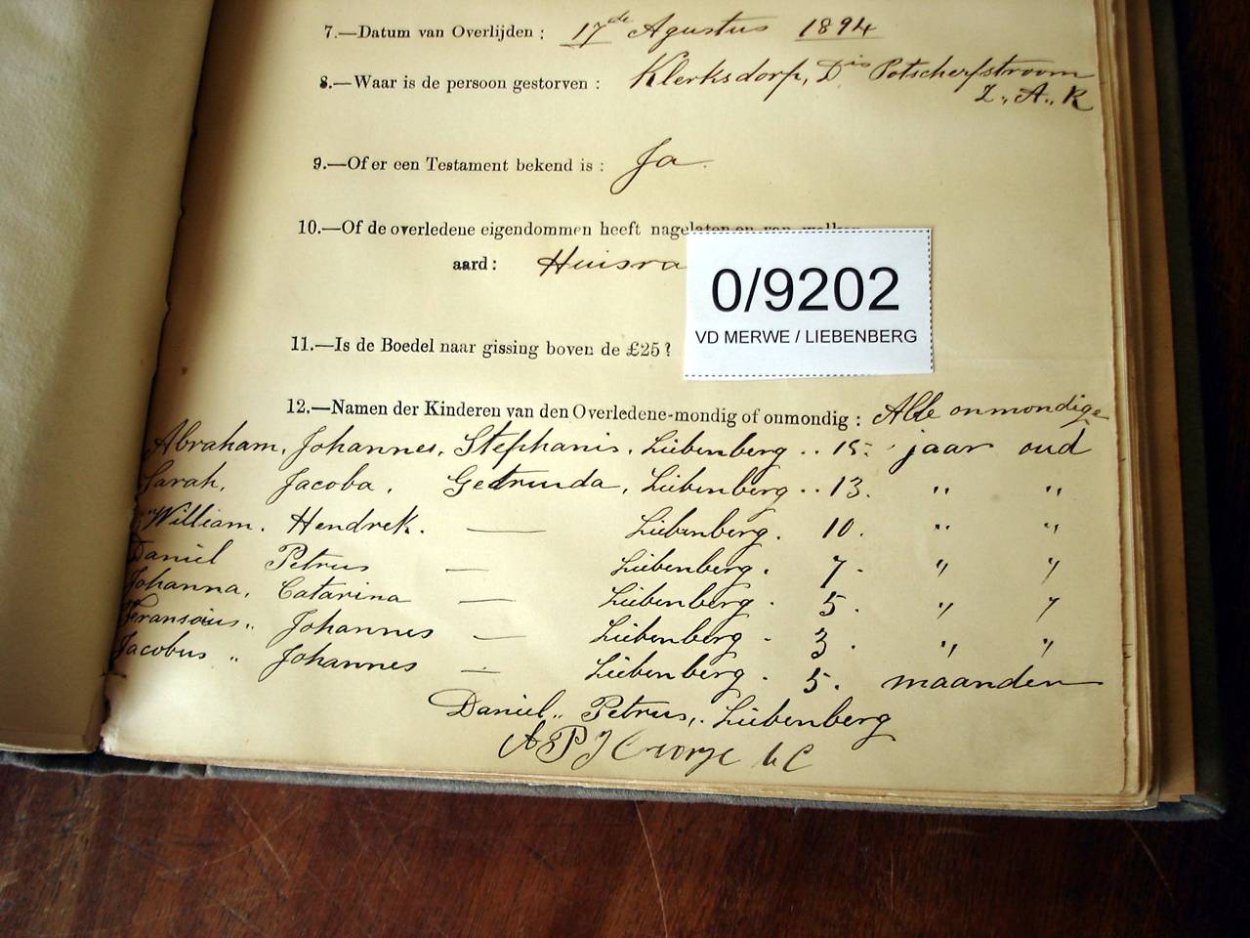 7.—Datum van Overlijden : 17de Agustus 1894
8.—Waar is de persoon gestorven : Klerksdorp, Dis Potscherfstroom
Z., A., R
9.—Of er een Testament bekend is : Ja.
10.—Of de overledene eigendommen heeft nagelaten en van welken
aard : Huisra
0/9202
VD MERWE / LIEBENBERG
11.—Is de Boedel naar gissing boven de £25 ?
12.—Namen der Kinderen van den Overledene-mondig of onmondig : Alle onmondige
Abraham, Johannes, Stephanis, Liebenberg .. 15. jaar oud
Sarah, Jacoba, Getruida, Liebenberg .. 13. " "
William. Hendrek. — Liebenberg. 10. " "
Daniel Petrus — Liebenberg. 7. " "
Johanna, Catarina — Liebenberg. 5. " "
Fransoius,, Johannes — Liebenberg. 3. " "
Jacobus ,, Johannes — Liebenberg. 5. maanden
Daniel,, Petrus,, Liebenberg